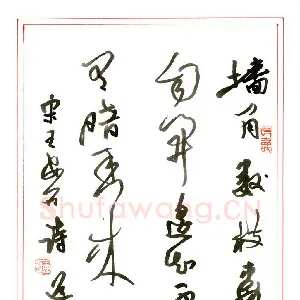 墙角数枝梅
自开遥知不
有暗香来
宋王安石诗
Shufawang.CN